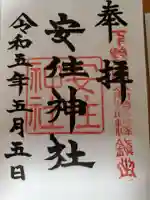 奉拝
安住神社
令和五年五月五日